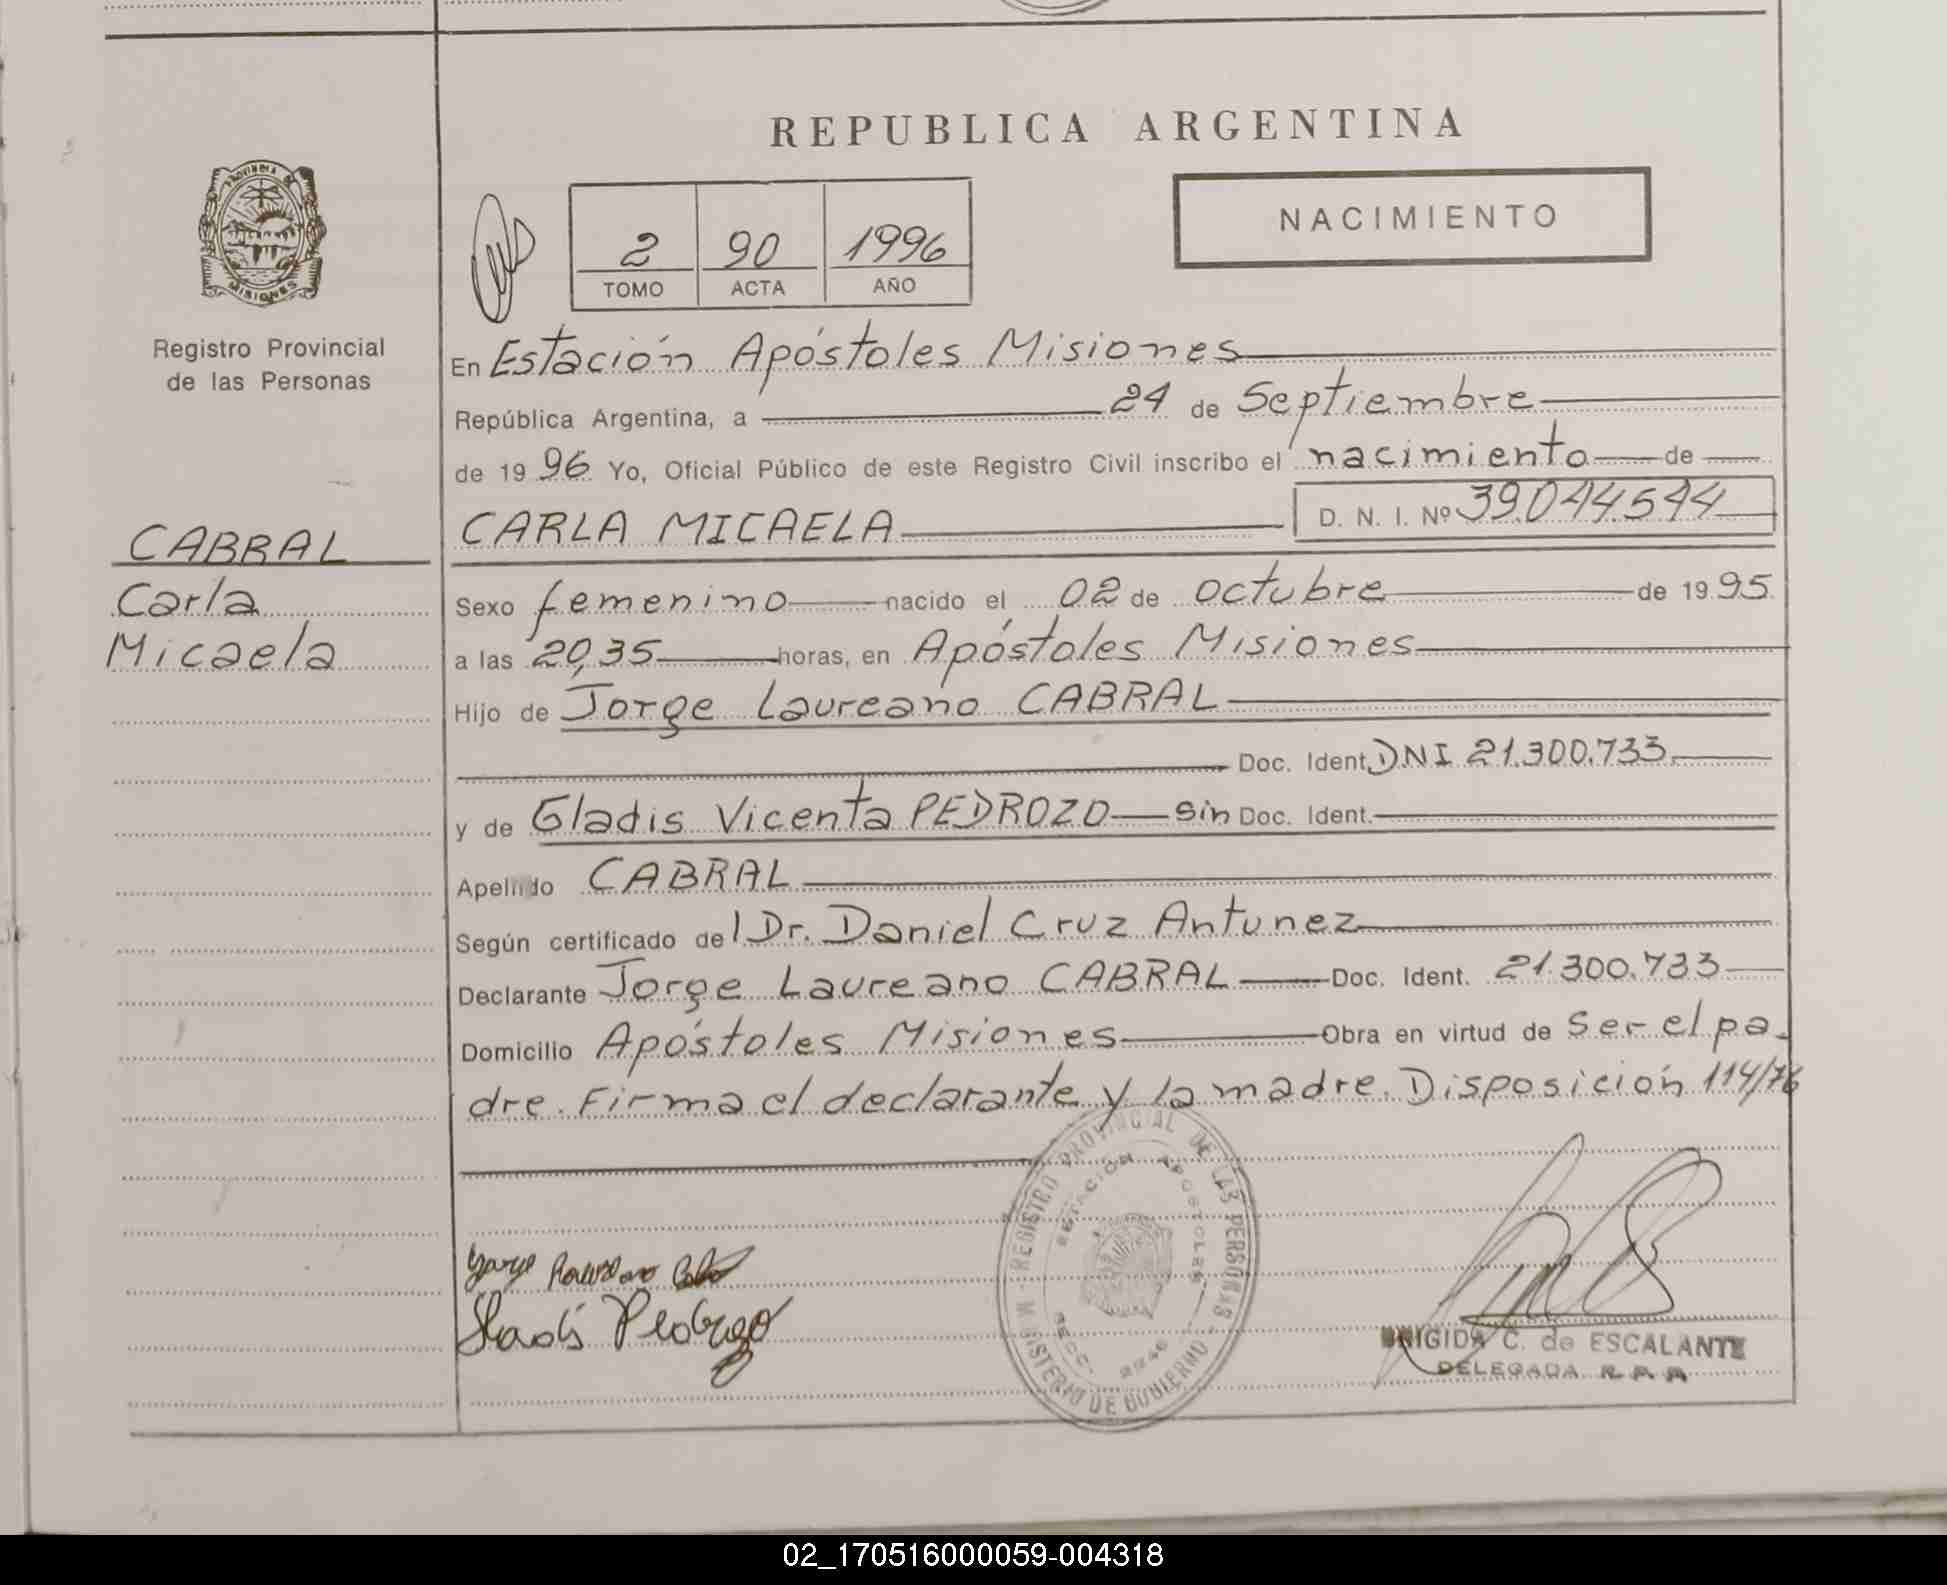 REPUBLICA ARGENTINA
PROVINCIA DE
MISIONES
Registro Provincial
de las Personas
2 90 1996
TOMO ACTA AÑO
NACIMIENTO
CABRAL
Carla
Micaela
En Estación Apóstoles Misiones
República Argentina, a 24 de Septiembre
de 1996 Yo, Oficial Público de este Registro Civil inscribo el nacimiento de
CARLA MICAELA D. N. I. Nº 39.044.544
Sexo femenino nacido el 02 de octubre de 1995
a las 20,35 horas, en Apóstoles Misiones
Hijo de Jorge Laureano CABRAL
Doc. Ident. DNI 21.300.733
y de Gladis Vicenta PEDROZO sin Doc. Ident.
Apellido CABRAL
Según certificado del Dr. Daniel Cruz Antunez
Declarante Jorge Laureano CABRAL Doc. Ident. 21.300.733
Domicilio Apóstoles Misiones Obra en virtud de Ser el pa-
dre. Firma el declarante y la madre. Disposición 114/76
REGISTRO PROVINCIAL DE LAS PERSONAS
MINISTERIO DE GOBIERNO
ESTACIÓN APOSTOLES
SECC. 2246
BRIGIDA C. de ESCALANTE
DELEGADA R.P.P.
02_170516000059-004318